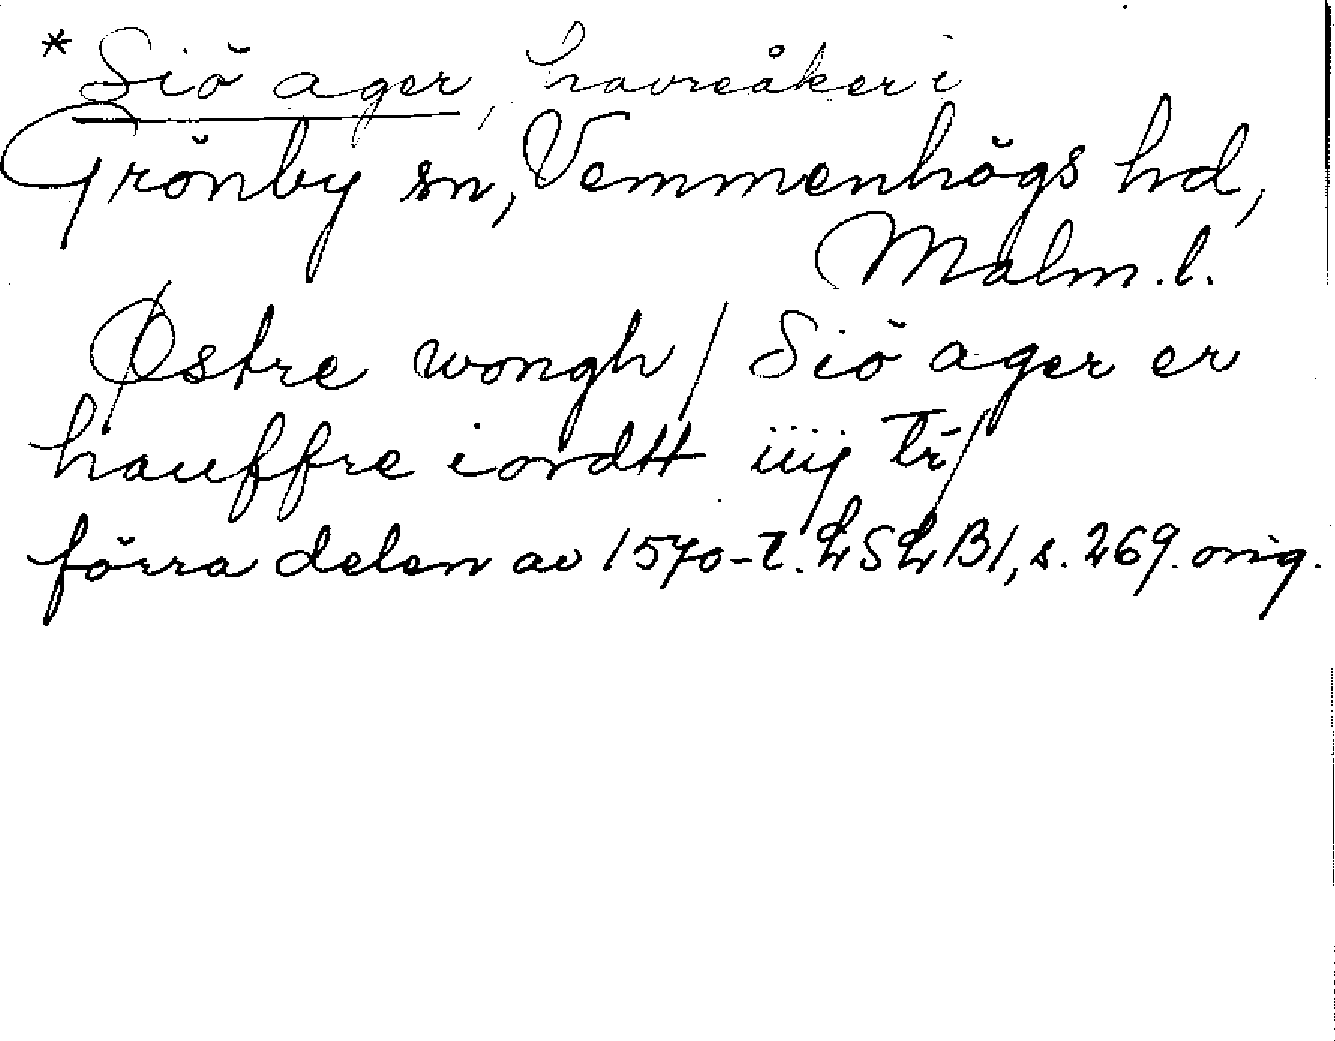 * Siö ager, havreåker i
Grönby sn, Vemmenhögs hd,
Malm. l.
Østre wongh / Siö ager er
hauffre iordtt iiij
förra delen av 1570-t. LSLB1, s. 269. orig.